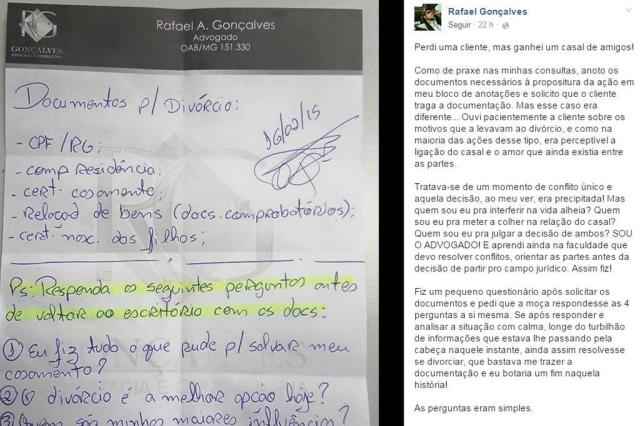 GONÇALVES
Rafael A. Gonçalves
Advogado
OAB/MG 151.330
Documentos p/ Divórcio:
16/02/15
- CPF/RG;
- comp Residência;
- cert. casamento;
- Relacod de bens (docs. comprobatórios);
- cert. nasc. dos filhos;
Ps: Responda as seguintes perguntas antes
de voltar ao escritório com os docs:
① Eu fiz tudo o que pude p/ salvar meu
casamento?
② O divórcio é a melhor opção hoje?
são minhas maiores influências?
Rafael Gonçalves
Seguir · 22 h ·
Perdi uma cliente, mas ganhei um casal de amigos!
Como de praxe nas minhas consultas, anoto os
documentos necessários à propositura da ação em
meu bloco de anotações e solicito que o cliente
traga a documentação. Mas esse caso era
diferente... Ouvi pacientemente a cliente sobre os
motivos que a levavam ao divórcio, e como na
maioria das ações desse tipo, era perceptível a
ligação do casal e o amor que ainda existia entre
as partes.
Tratava-se de um momento de conflito único e
aquela decisão, ao meu ver, era precipitada! Mas
quem sou eu pra interferir na vida alheia? Quem
sou eu pra meter a colher na relação do casal?
Quem sou eu pra julgar a decisão de ambos? SOU
O ADVOGADO! E aprendi ainda na faculdade que
devo resolver conflitos, orientar as partes antes da
decisão de partir pro campo jurídico. Assim fiz!
Fiz um pequeno questionário após solicitar os
documentos e pedi que a moça respondesse as 4
perguntas a si mesma. Se após responder e
analisar a situação com calma, longe do turbilhão
de informações que estava lhe passando pela
cabeça naquele instante, ainda assim resolvesse
se divorciar, que bastava me trazer a
documentação e eu botaria um fim naquela
história!
As perguntas eram simples.